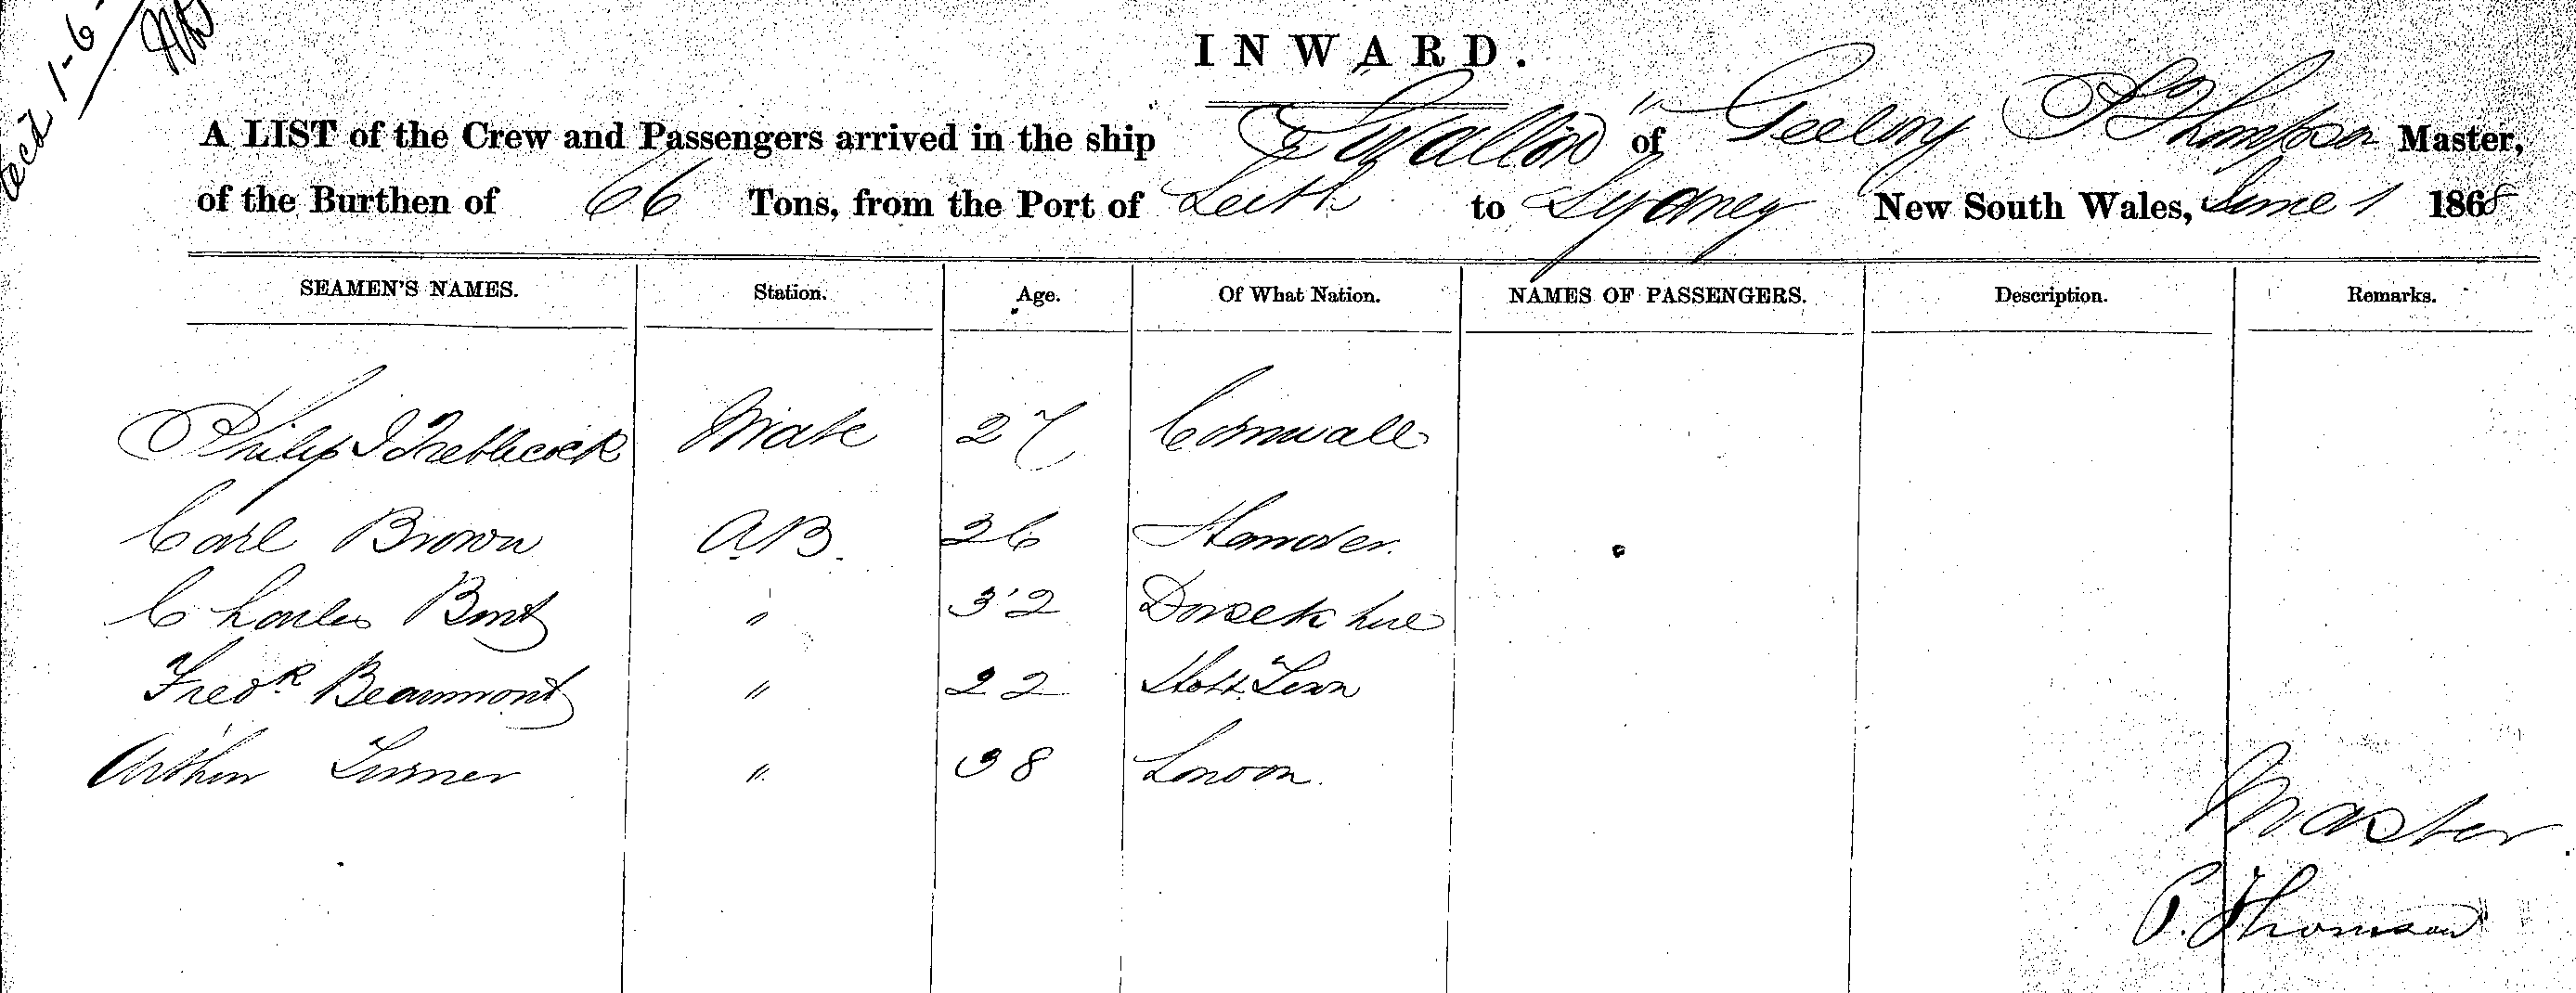 recd 1-6-
INWARD.
A LIST of the Crew and Passengers arrived in the ship "Swallow" of Geelong P Thompson Master,
of the Burthen of 66 Tons, from the Port of Leith to Sydney New South Wales, June 1 1868
SEAMEN'S NAMES. Station. Age. Of What Nation. NAMES OF PASSENGERS. Description. Remarks.
Philip J Trebblecock Mate 27 Cornwall
Carl Brown A.B. 26 Hanover.
Charles Bint " 32 Dorsetshire
Fredk Beaumont " 22
Arthur Turner " 38 London.
Master
P. Thomson